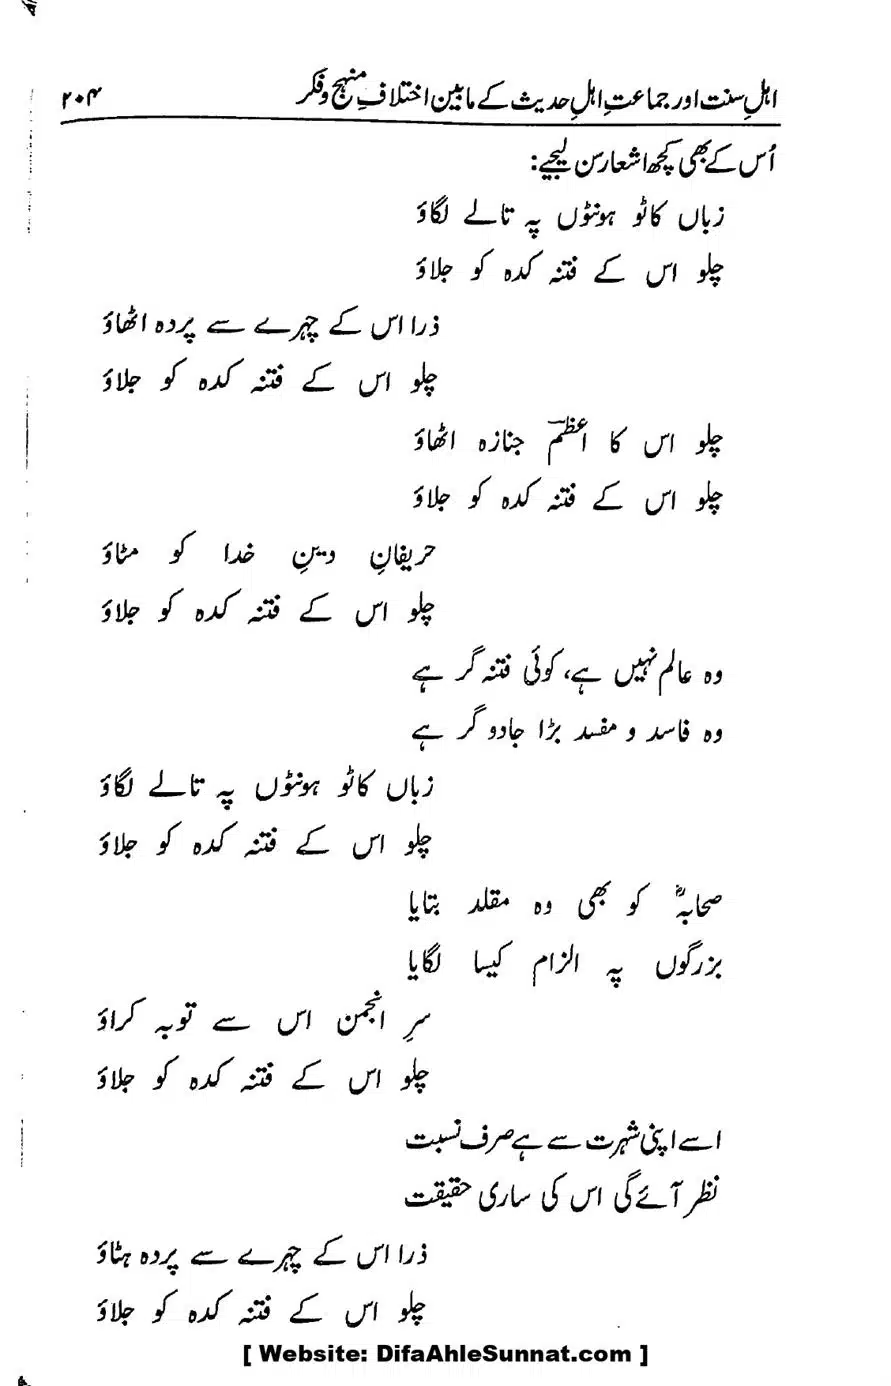 اہلِ سنت اور جماعتِ اہلِ حدیث کے مابین اختلافِ منہج و فکر ۲۰۴
اُس کے بھی کچھ اشعار سن لیجیے:
زباں کاٹو ہونٹوں پہ تالے لگاؤ
چلو اس کے فتنہ کدہ کو جلاؤ
ذرا اس کے چہرے سے پردہ اٹھاؤ
چلو اس کے فتنہ کدہ کو جلاؤ
چلو اس کا اعظمؔ جنازہ اٹھاؤ
چلو اس کے فتنہ کدہ کو جلاؤ
حریفانِ دینِ خدا کو مٹاؤ
چلو اس کے فتنہ کدہ کو جلاؤ
وہ عالم نہیں ہے، کوئی فتنہ گر ہے
وہ فاسد و مفسد بڑا جادو گر ہے
زباں کاٹو ہونٹوں پہ تالے لگاؤ
چلو اس کے فتنہ کدہ کو جلاؤ
صحابہؓ کو بھی وہ مقلد بتایا
بزرگوں پہ الزام کیسا لگایا
سرِ انجمن اس سے توبہ کراؤ
چلو اس کے فتنہ کدہ کو جلاؤ
اسے اپنی شہرت سے ہے صرف نسبت
نظر آئے گی اس کی ساری حقیقت
ذرا اس کے چہرے سے پردہ ہٹاؤ
چلو اس کے فتنہ کدہ کو جلاؤ
[ Website: DifaAhleSunnat.com ]